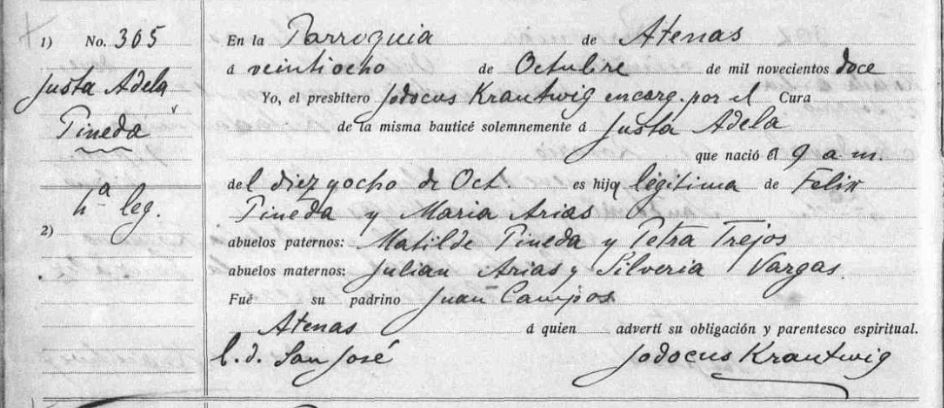 1) No. 305
Justa Adela
Pineda
hª leg.
2)
En la Parroquia de Atenas
á veintiocho de Octubre de mil novecientos doce
Yo, el presbítero Jodocus Krautwig encarg. por el Cura
de la misma bauticé solemnemente á Justa Adela
que nació él 9 a.m.
del diez y ocho de Oct. es hija legítima de Felix
Pineda y Maria Arias
abuelos paternos: Matilde Pineda y Petra Trejos
abuelos maternos: Julian Arias y Silveria Vargas.
Fué su padrino Juan Campos
Atenas á quien advertí su obligación y parentesco espiritual.
b. d. San José Jodocus Krautwig